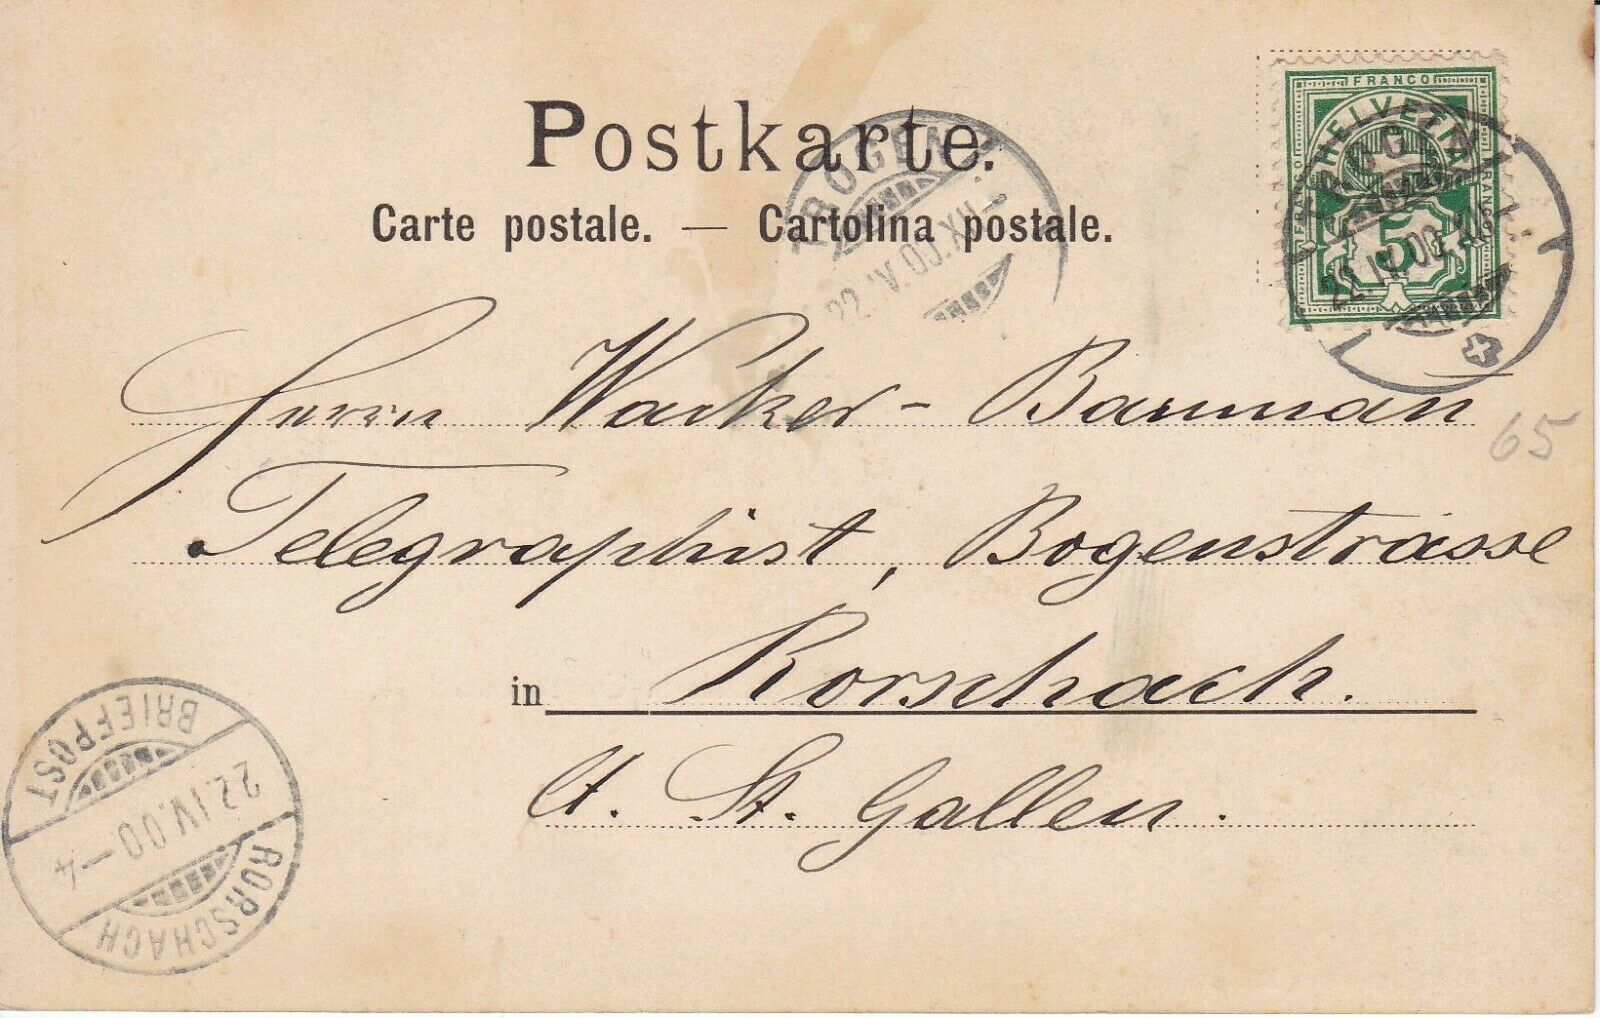 Postkarte.
Carte postale. — Cartolina postale.
FRANCO
HELVETIA
FRANCO
5
TROGEN
22.IV.00.XII
TROGEN
22.IV.00.XII
Herrn Wacker - Bauman
65
Telegraphist, Bogenstrasse
in Rorschach.
Ct. St. Gallen.
BRIEFPOST
22.IV.00-4
RORSCHACH